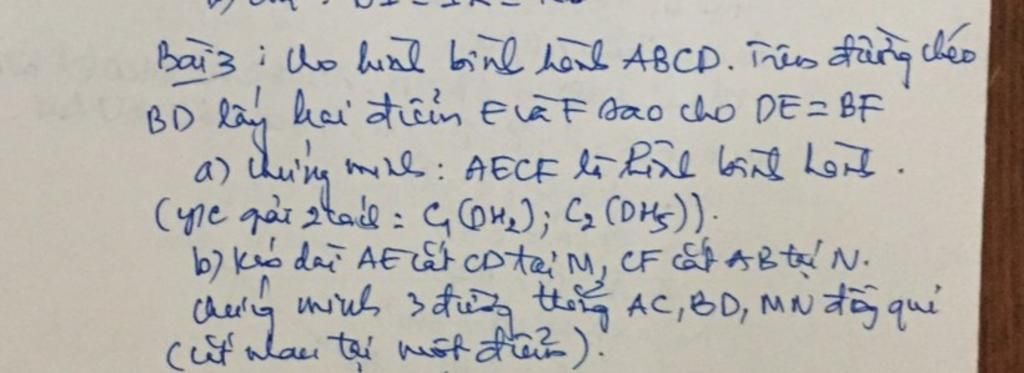 Bài 3 : Cho hình bình hành ABCD. Trên đường chéo
BD lấy hai điểm E và F sao cho DE = BF
a) Chứng minh : AECF là hình bình hành .
(y/c giải 2 cách : C1 (DH2) ; C2 (DH5)).
b) Kéo dài AE cắt CD tại M, CF cắt AB tại N.
Chứng minh 3 đường thẳng AC, BD, MN đồng qui
(cắt nhau tại một điểm).